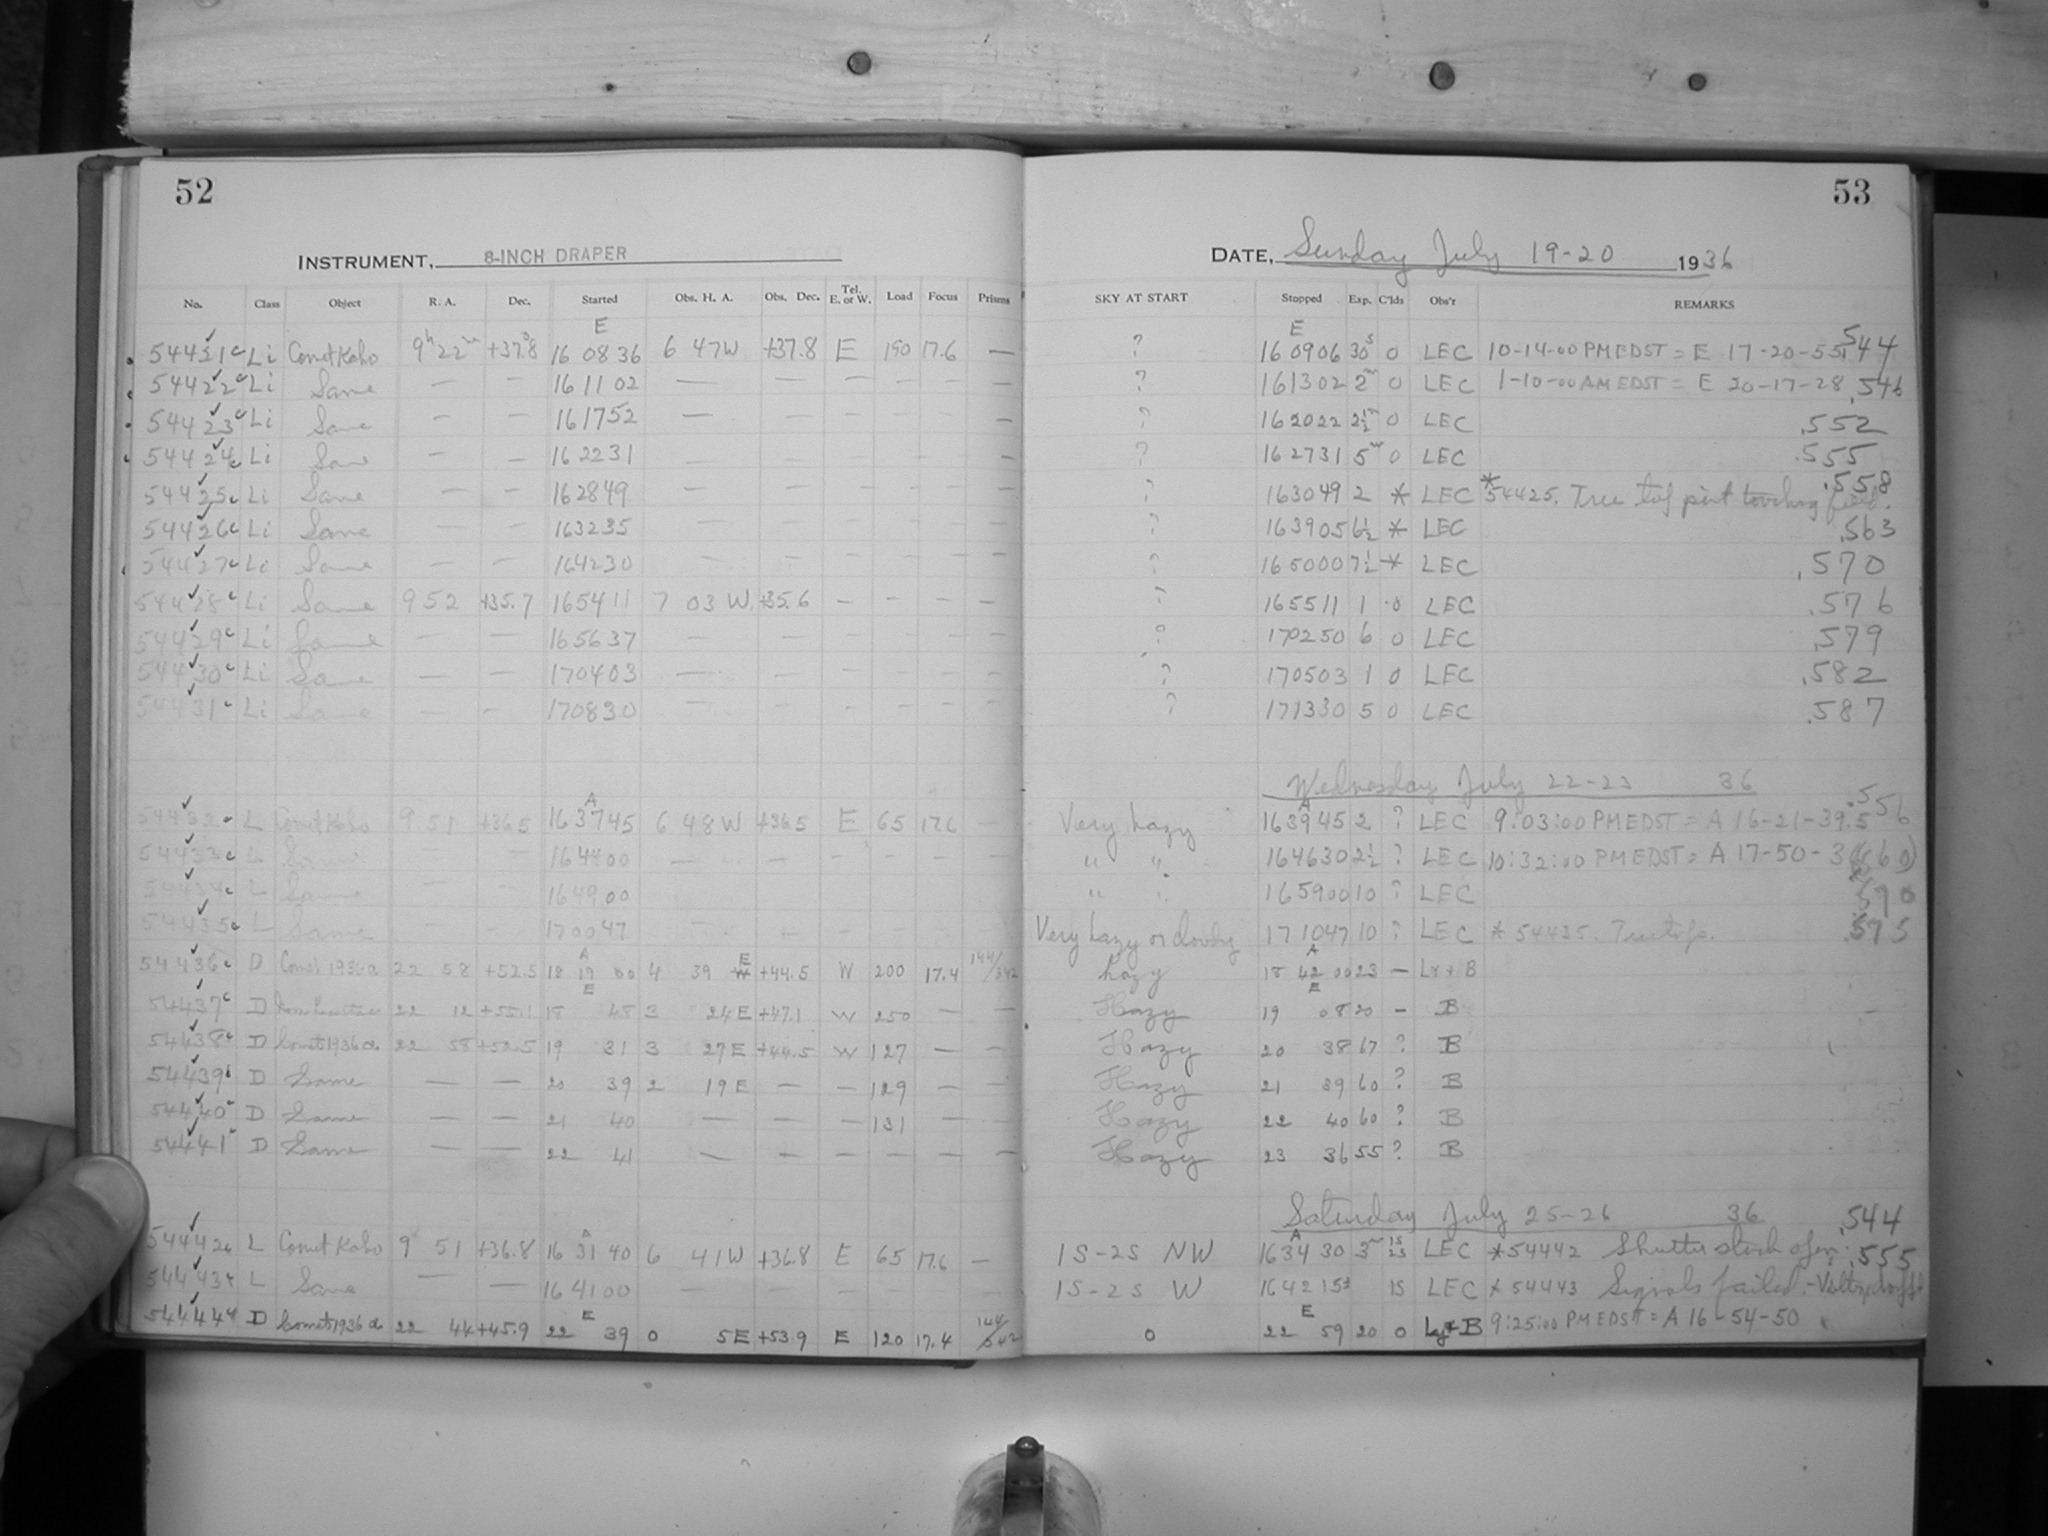 52
53
INSTRUMENT, 8-INCH DRAPER
DATE, Sunday July 19-20 1936
No. Class Object R. A. Dec. Started Obs. H. A. Obs. Dec. Tel. E. or W. Load Focus Prisms SKY AT START Stopped Exp. C'lds Obs'r REMARKS
E E
54421c Li Comet Kaho 9h 22m +37.8 16 08 36 6 47W +37.8 E 150 17.6 — ? 16 09 06 30s 0 LEC 10-14-00 PM EDST = E 17-20-55 .544
54422c Li Same — — 16 11 02 — — — — — — ? 16 13 02 2m 0 LEC 1-10-00 AM EDST = E 20-17-28 .546
54423c Li Same — — 16 17 52 — — — — — — ? 16 20 22 2½m 0 LEC .552
54424c Li Same — — 16 22 31 — — — — — — ? 16 27 31 5m 0 LEC .555
54425c Li Same — — 16 28 49 — — — — — — ? 16 30 49 2 * LEC *54425. Tree top just touching field. .558
54426c Li Same — — 16 32 35 — — — — — — ? 16 39 05 6½ * LEC .563
54427c Li Same — — 16 42 30 — — — — — — ? 16 50 00 7½ * LEC .570
54428c Li Same 9 52 +35.7 16 54 11 7 03 W +35.6 — — — — ? 16 55 11 1 0 LEC .576
54429c Li Same — — 16 56 37 — — — — — — ? 17 02 50 6 0 LEC .579
54430c Li Same — — 17 04 03 — — — — — — ? 17 05 03 1 0 LEC .582
54431c Li Same — — 17 08 30 — — — — — — ? 17 13 30 5 0 LEC .587
Wednesday July 22-23 36
A A
54432c L Comet Kaho 9 51 +36.5 16 37 45 6 48W +36.5 E 65 17.6 — Very hazy 16 39 45 2 ? LEC 9:03:00 PM EDST = A 16-21-39.5 .556
54433c L Same — — 16 44 00 — — — — — — " " 16 46 30 2½ ? LEC 10:32:00 PM EDST = A 17-50-3
54434c L Same — — 16 49 00 — — — — — — " " 16 59 00 10 ? LEC .570
54435c L Same — — 17 00 47 — — — — — — Very hazy or cloudy 17 10 47 10 ? LEC * 54435. Treetops. .575
A A
54436c D Comet 1936a 22 58 +52.5 18 19 00 4 39 E +44.5 W 200 17.4 144/342 hazy 18 42 00 23 — Ly + B
E E
54437c D 22 12 +55.1 18 48 3 24E +47.1 W 250 — — Hazy 19 08 20 — B
54438c D Comet 1936a 22 58 +52.5 19 31 3 27E +44.5 W 127 — — Hazy 20 38 67 ? B
54439c D Same — — 20 39 2 19E — — 129 — — Hazy 21 39 60 ? B
54440c D Same — — 21 40 — — — 131 — — Hazy 22 40 60 ? B
54441c D Same — — 22 41 — — — — — — Hazy 23 36 55 ? B
Saturday July 25-26 36 .544
A A
54442c L Comet Kaho 9 51 +36.8 16 31 40 6 41W +36.8 E 65 17.6 — 1S-2S NW 16 34 30 3m 1S 2S LEC *54442 Shutter stuck open. .555
54443c L Same — — 16 41 00 — — — — — — 1S-2S W 16 42 15 1S LEC * 54443 Signals failed.
E E
54444c D Comet 1936a 22 44 +45.9 22 39 0 5E +53.9 E 120 17.4 144/342 0 22 59 20 0 Ly+B 9:25:00 PM EDST = A 16-54-50